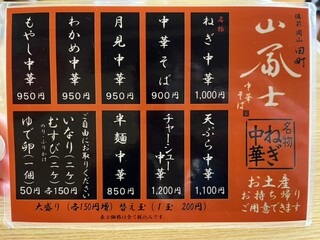 備前岡山 田町
山富士
中華そば
名物
ねぎ中華
お土産
お持ち帰り
ご用意できます
名物
ねぎ中華
1,000円
中華そば
900円
月見中華
950円
わかめ中華
950円
もやし中華
950円
天ぷら中華
1,100円
チャーシュー中華
1,200円
半麺中華
850円
ご自由にお取りください
いなり(二ケ)
むすび(二ケ)
各150円
ゆで卵(一個)
50円
大盛り(各150円増) 替え玉(1玉 200円)
表示価格は全て税込みです